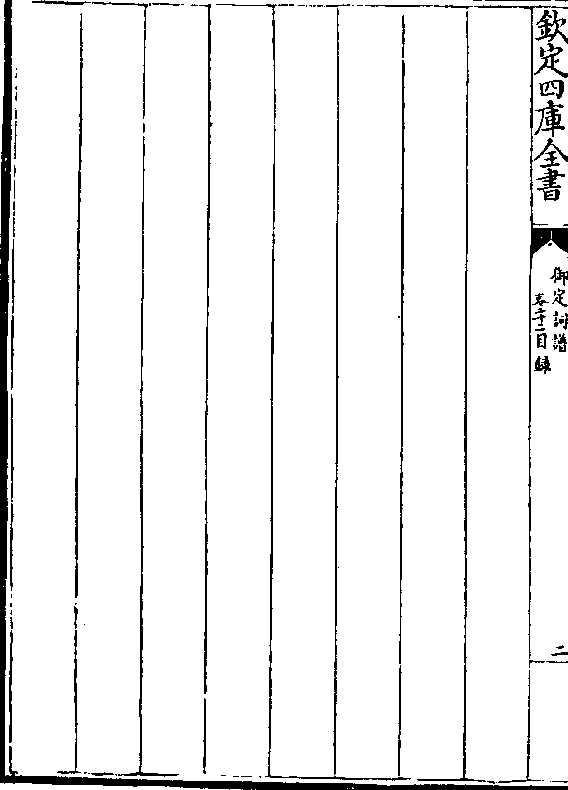 欽定四庫全書
御定詞譜
卷二十二目録
二